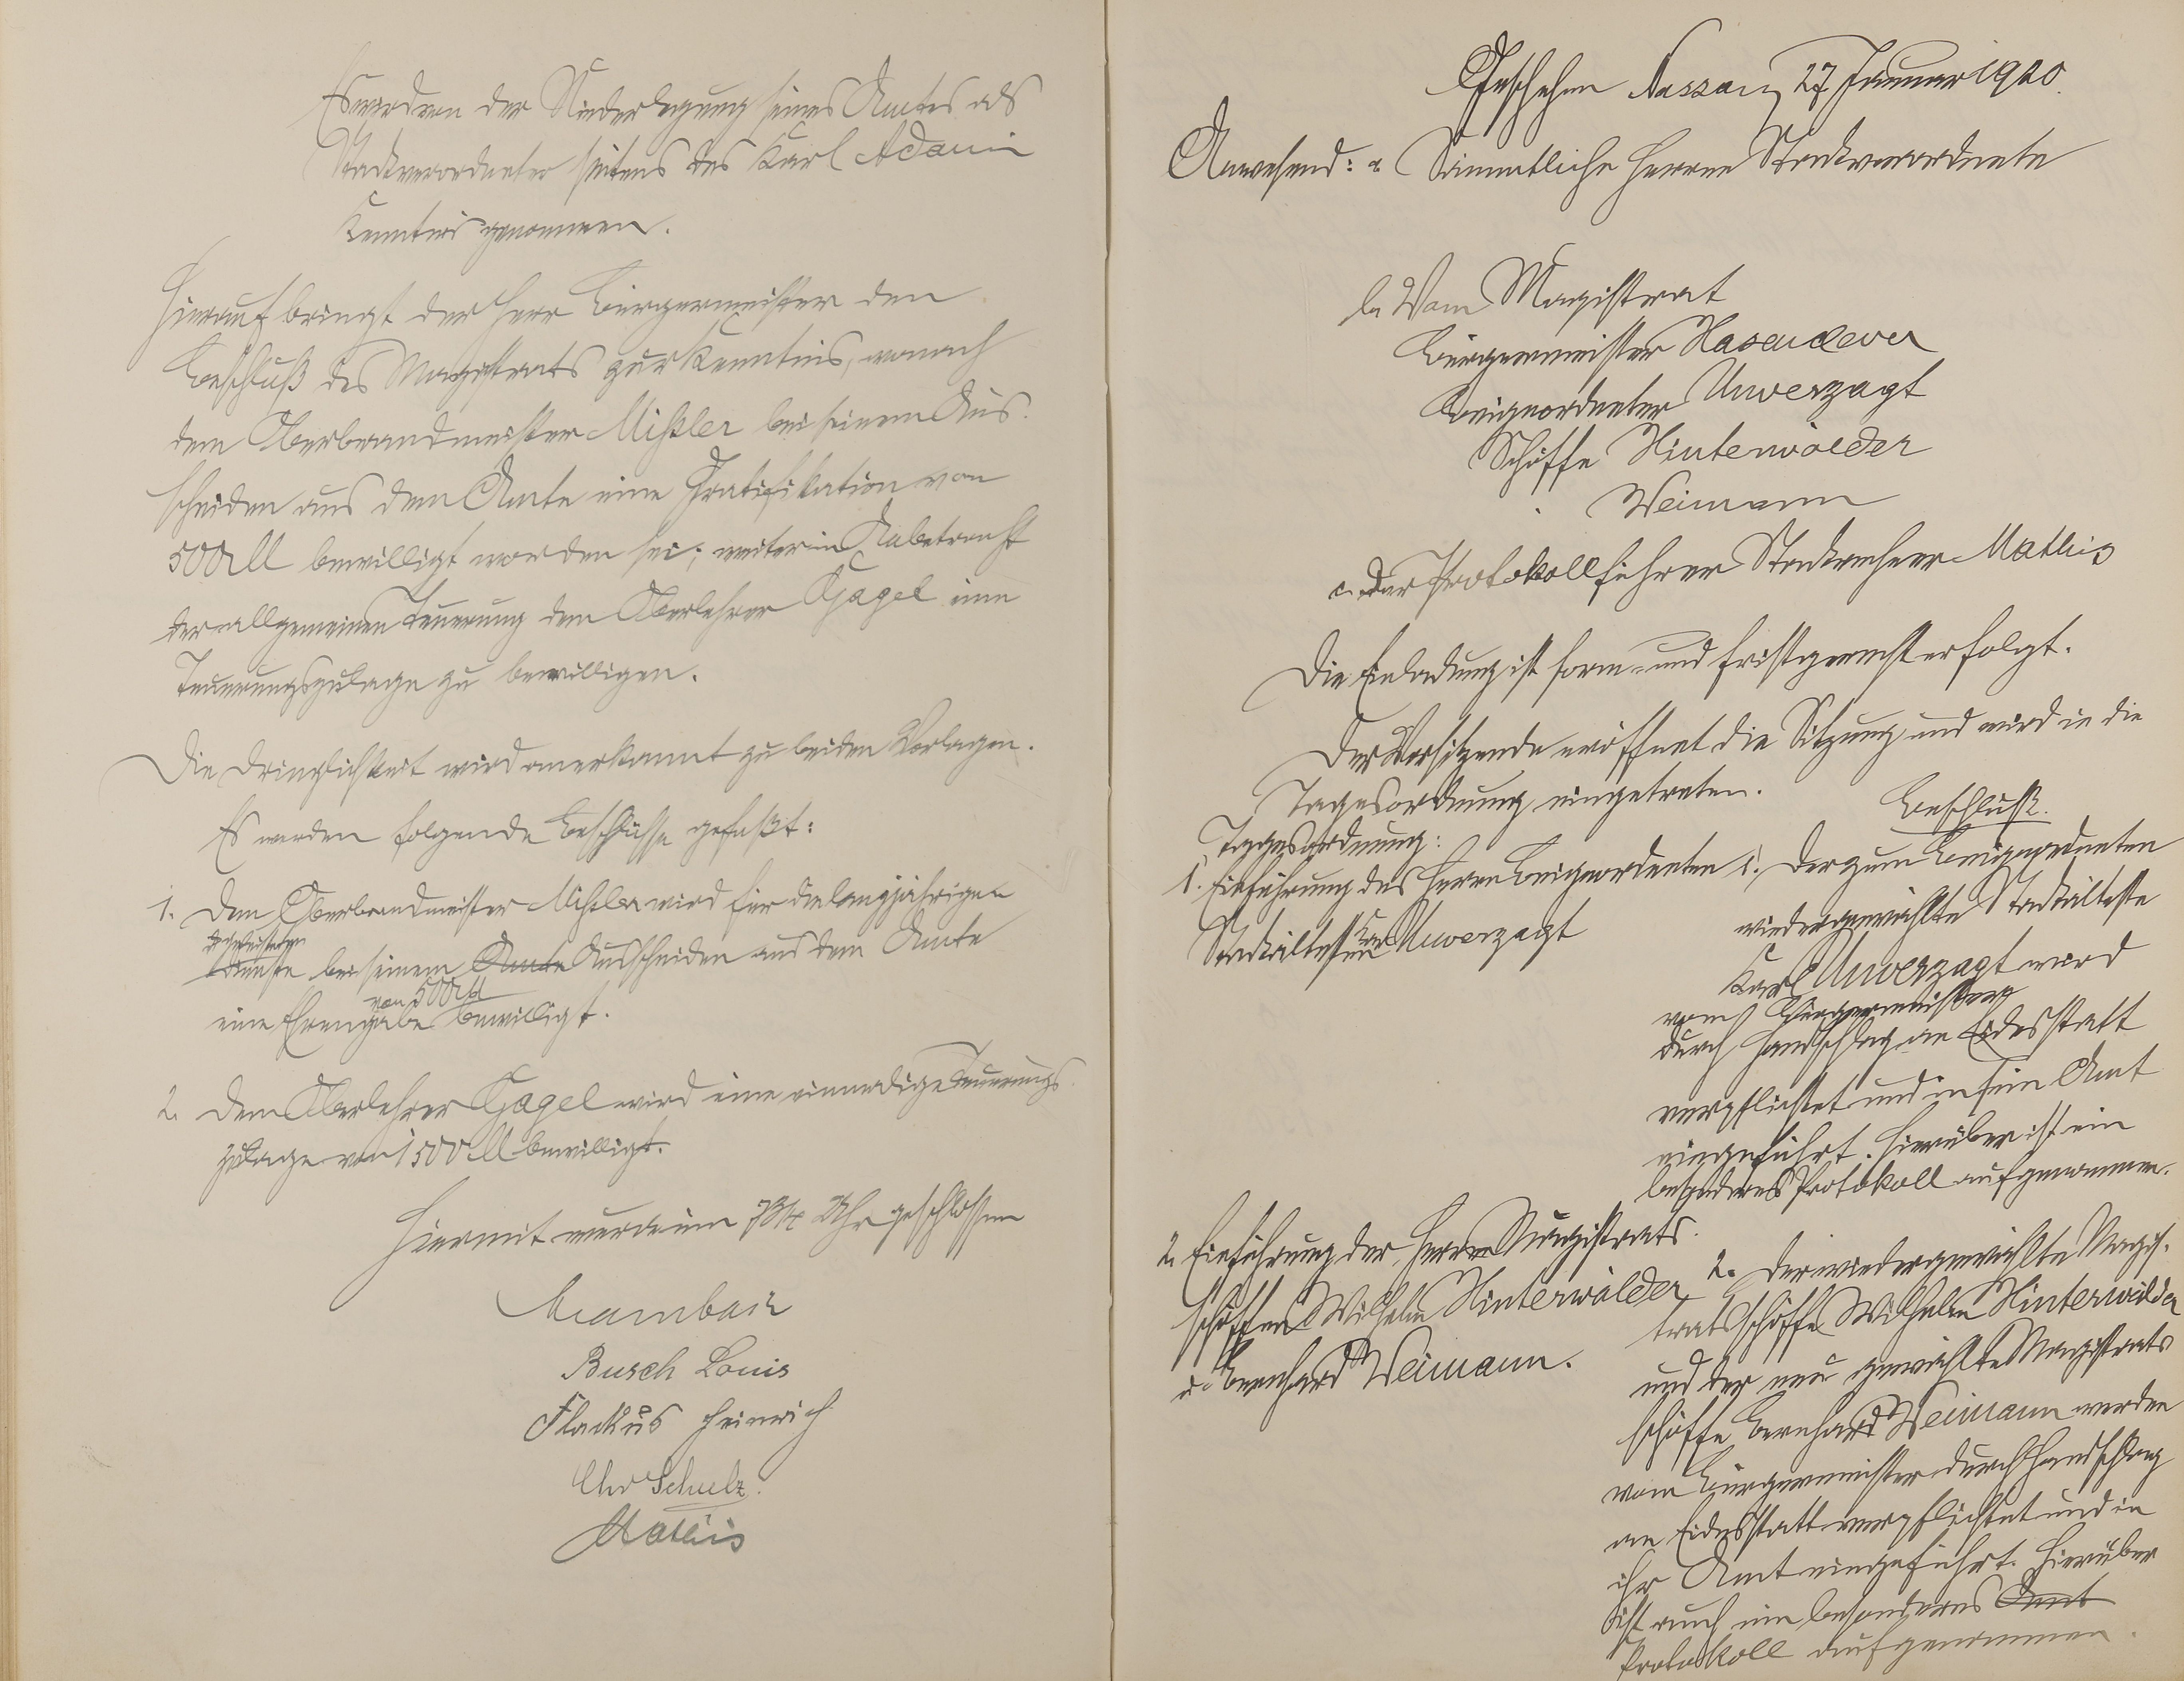 Es wird von der Niederlegung seines Amtes als
Stadtverordneter seitens des Karl Adami
Kenntnis genommen.
Hierauf bringt der Herr Bürgermeister den
Beschluß des Magistrats zur Kenntnis, wonach
dem Oberbrandmeister Mißler bei seinem Aus-
scheiden aus dem Amte eine Gratifikation von
500 M bewilligt worden sei; weiter in Anbetracht
der allgemeinen Teuerung dem Oberlehrer Gagel eine
Teuerungszulage zu bewilligen.
Die Dringlichkeit wird anerkannt zu beiden Vorlagen.
Es werden folgende Beschlüsse gefaßt:
1. Dem Oberbrandmeister Mißler wird für die langjährigen
geleisteten
Dienste bei seinem Amte Ausscheiden aus dem Amte
von 500 M
eine Ehrengabe bewilligt.
2. Dem Oberlehrer Gagel wird eine einmalige Teuerungs-
zulage von 1500 M bewilligt.
Hiermit wurde um 7 3/4 Uhr geschlossen
Busch Louis
Flackus Heinrich
Chr Schulz.
Mathis
Geschehen Nassau, 27 Januar 1920.
Anwesend: a Sämmtliche Herren Stadtverordnete
b. Vom Magistrat
Bürgermeister Hasenclever
Beigeordneter Unverzagt
Schöffe Hinterwälder
" Weimann
c. Der Protokollführer Stadtrechner Mathis
Die Einladung ist form- und fristgerecht erfolgt.
Der Vorsitzende eröffnet die Sitzung und wird in die
Tagesordnung eingetreten.
Tagesordnung:
1. Einführung des Herrn Beigeordneten
Stadtältesten Karl Unverzagt
Beschluß.
1. Der zum Beigeordneten
wiedergewählte Stadtälteste
Karl Unverzagt wird
vom Bürgermeister
durch Handschlag an Eidesstatt
verpflichtet und in sein Amt
eingeführt. Hierüber ist ein
besonderes Protokoll aufgenommen.
2. Einführung der Herren Magistrats-
schöffen Wilhelm Hinterwälder
u. Bernhard Weimann.
2. Der wiedergewählte Magis-
tratsschöffe Wilhelm Hinterwälder
und der neu gewählte Magistrats
schöffe Bernhard Weimann werden
vom Bürgermeister durch Handschlag
an Eidesstatt verpflichtet und in
ihr Amt eingeführt. Hierüber
ist auch ein besonderes Amt
Protokoll aufgenommen.